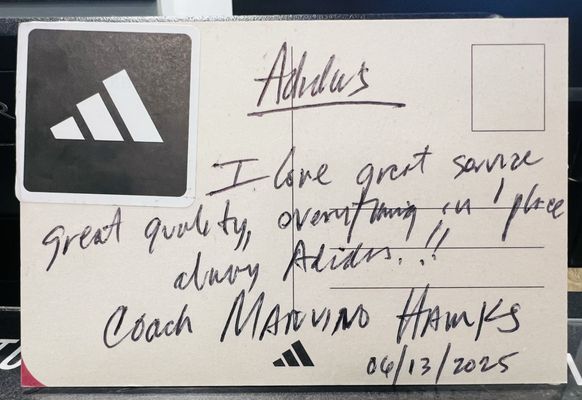 Adidas
I love great service
great quality, everything in 1 place
always Adidas.!!
Coach MARVINO HAWKS
06/13/2025